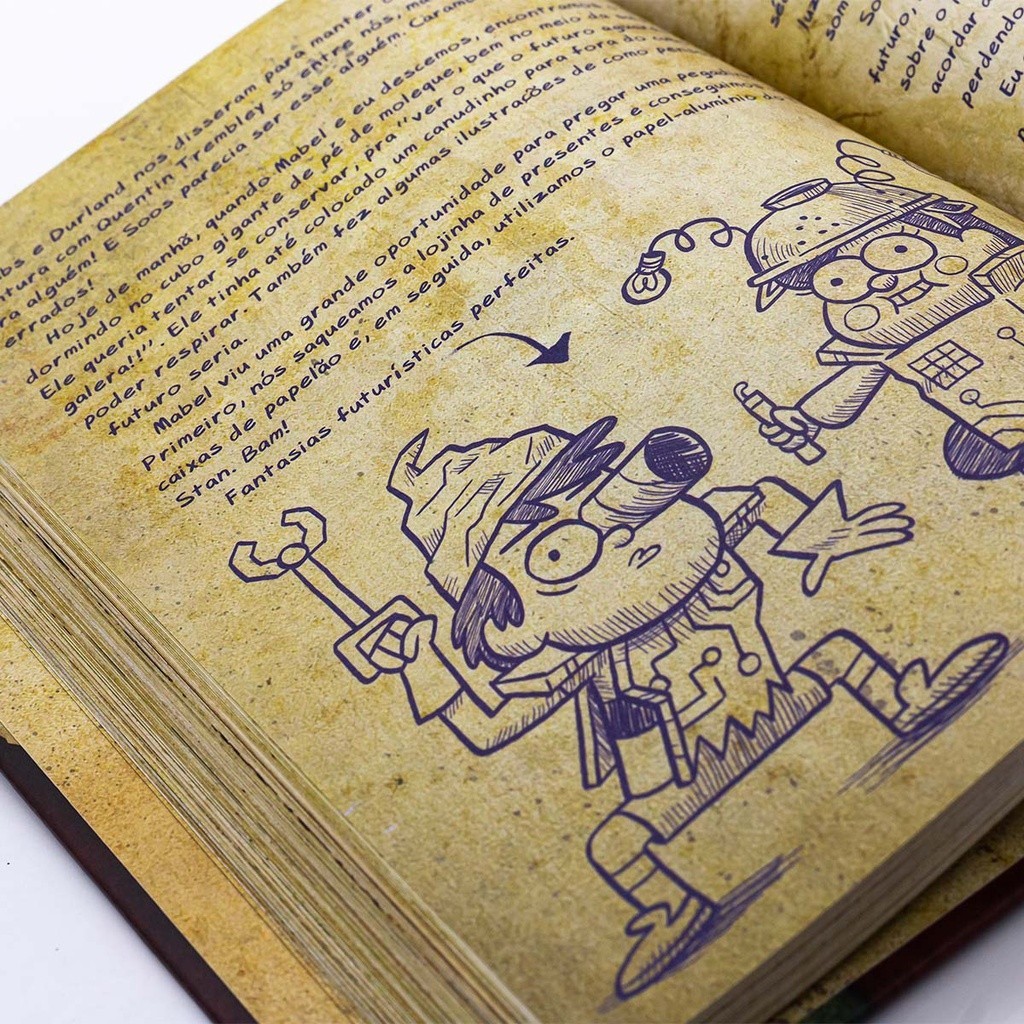 e Durland nos disseram para manter
com Quentin Trembley só entre nós,
alguém! E Soos parecia ser esse alguém.
errados!
Hoje de manhã, quando Mabel e eu descemos,
dormindo no cubo gigante de pé de moleque, bem no meio
Ele queria tentar se conservar, pra "ver o que o futuro
galera!!". Ele tinha até colocado um canudinho para fora do
poder respirar. Também fez algumas ilustrações de como
futuro seria.
Mabel viu uma grande oportunidade para pregar uma
Primeiro, nós saqueamos a lojinha de presentes e conseguimos
caixas de papelão e, em seguida, utilizamos o papel-alumínio do
Stan. Bam!
Fantasias futurísticas perfeitas.
futuro,
sobre o
acordar
perdendo
Eu